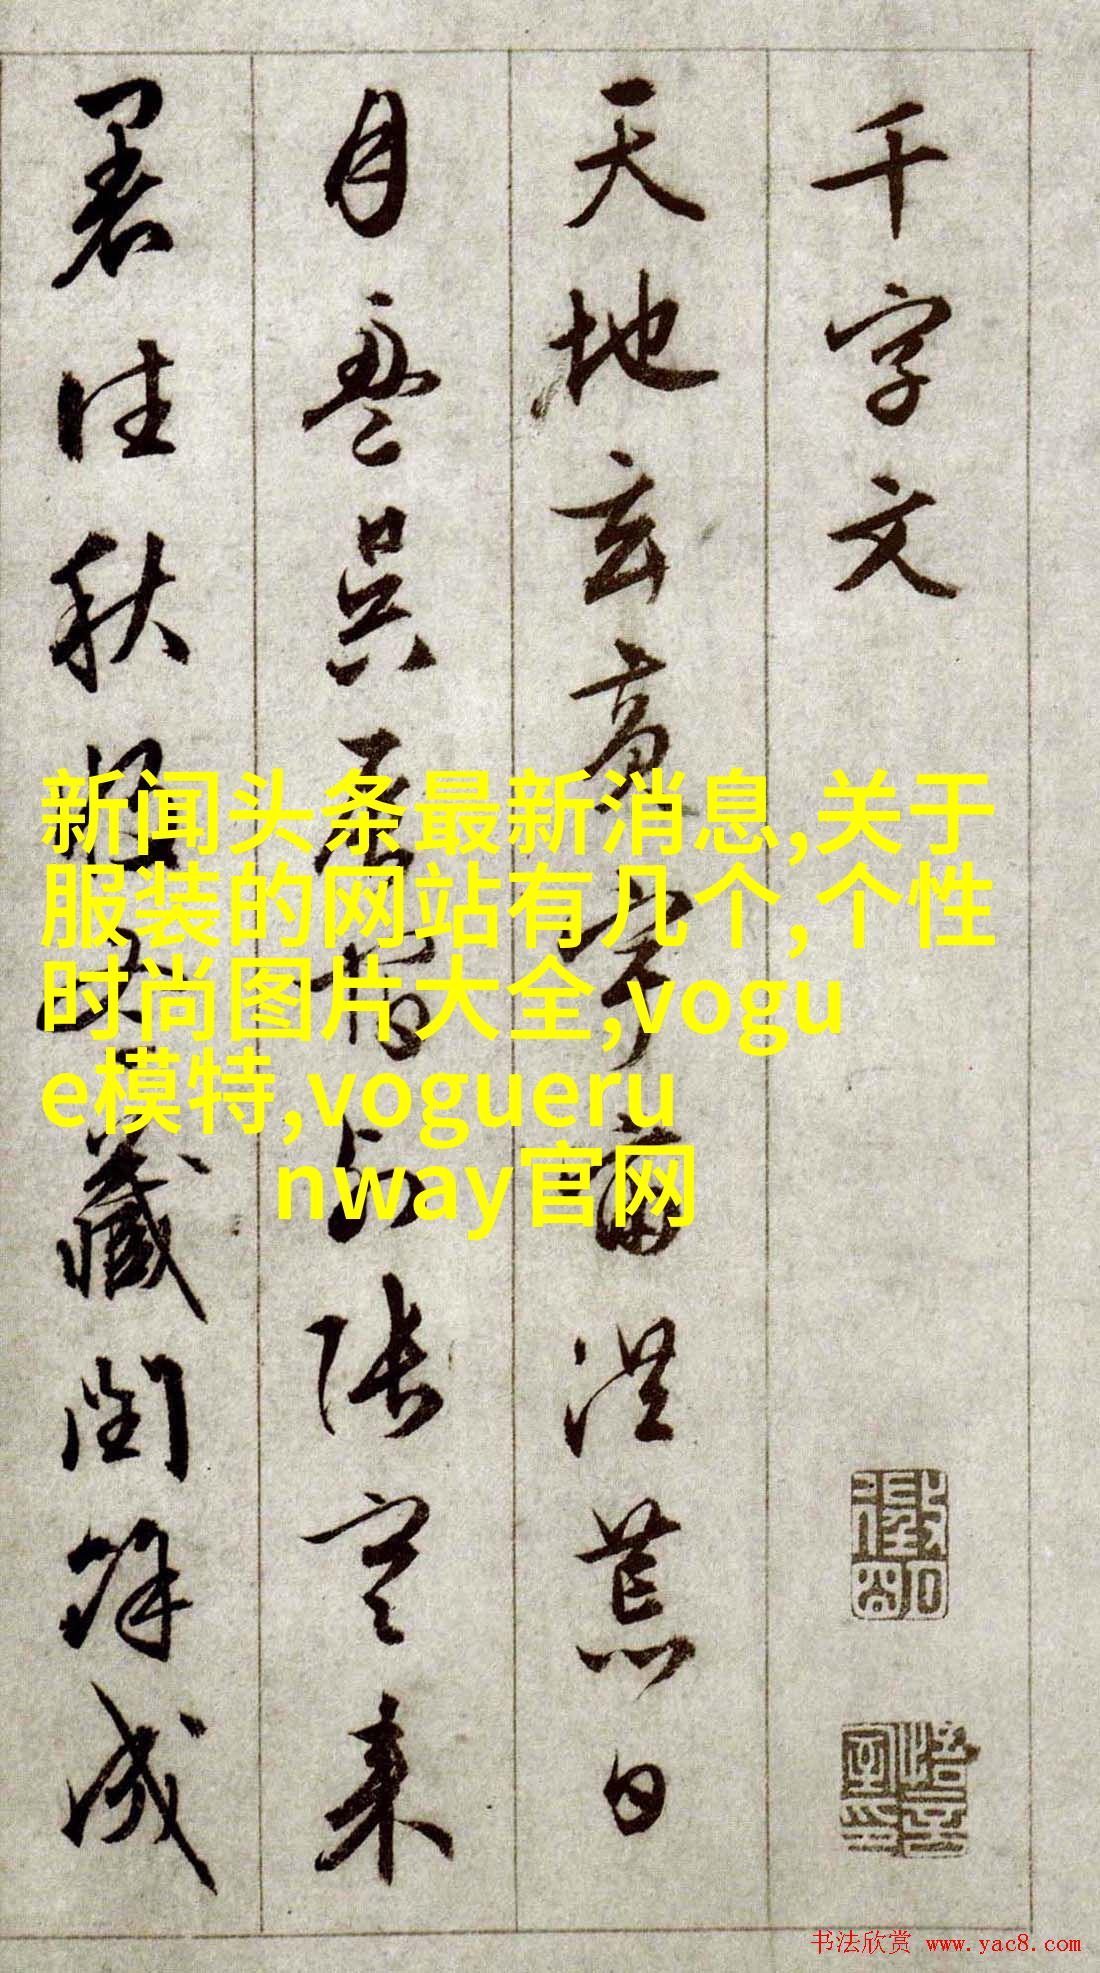 千字文
天地玄黃宇宙洪荒日
月盈昃辰宿列張寒来
暑往秋收冬藏閏餘成
新闻头条最新消息,关于
服装的网站有几个,个性
时尚图片大全,vogu
e模特,vogueru
nway官网
书法欣赏 www.yac8.com